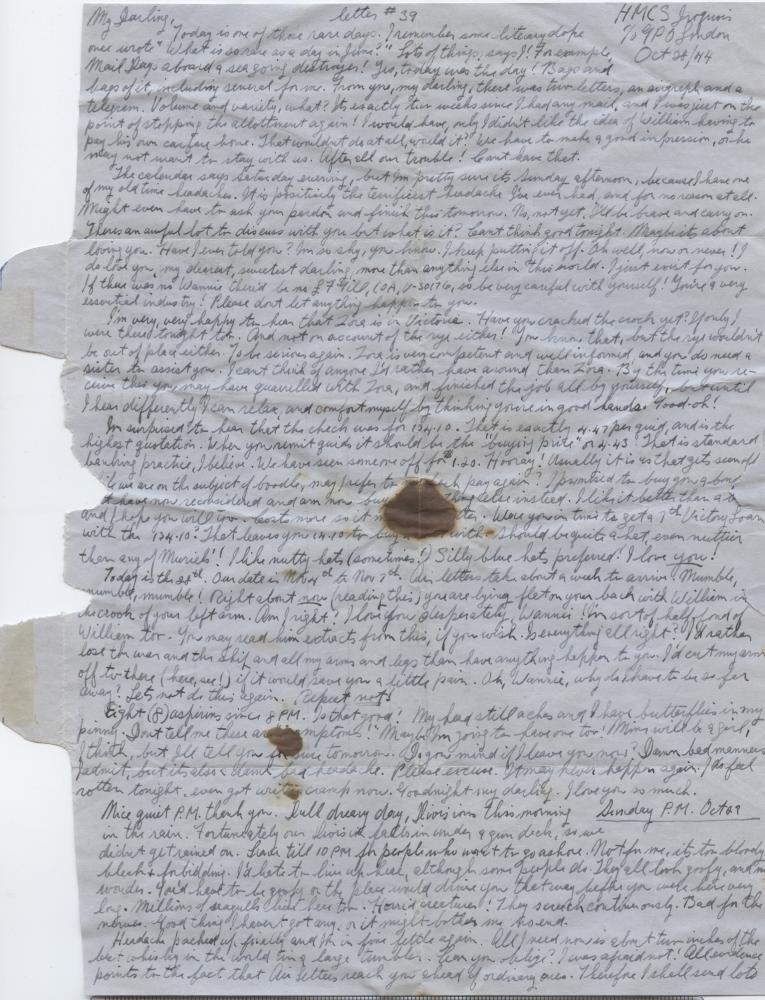 My Darling, letter #39 HMCS Iroquois
℅ GPO London
Oct 28/44
Today is one of those rare days. I remember some literary dope
once wrote "What is so rare as a day in June?" Lots of things, says I! For example,
Mail Days aboard a sea going destroyer! Yes, today was the day! Bags and
bags of it, including several for me. From you, my darling, there was two letters, an airgraph and a
telegram. Volume and variety, what? Its exactly two weeks since I had any mail, and I was just on the
point of stopping the allottment again! I would have, only I didn't like the idea of William having to
pay his own carfare home. That wouldn't do at all, would it? We have to make a good impression, or he
may not want to stay with us. After all our trouble! Can't have that.
The calendar says Saturday evening, but I'm pretty sure its Sunday afternoon, because I have one
of my old time headaches. It is positively the terrificest headache I've ever had, and for no reason at all.
Might even have to ask your pardon and finish this tomorrow. No, not yet, I'll be brave and carry on.
There's an awful lot to discuss with you but what is it? Can't think good tonight. Maybe its about
loving you. Have I ever told you? I'm so shy, you know. I keep putting it off. Oh well, now or never! I
do love you, my dearest, sweetest darling, more than anything else in this world. I just exist for you.
If there was no Wannie there'd be no Gill, V-30176, so be very careful with yourself! You're a very
essential industry! Please don't let anything happen to you.
I'm very, very happy to hear that Zora is in Victoria. Have you cracked the crock yet? If only I
were there tonight too. And not on account of the rye either! You know that, but the rye wouldn't
be out of place either. To be serious again. Zora is very competent and well informed, and you do need a
sister to assist you. I can't think of anyone I'd rather have around than Zora. By the time you re-
ceive this you may have quarrelled with Zora, and finished the job all by yourself, but until
I hear differently I can relax, and comfort myself by thinking you're in good hands. Good-oh!
I'm surprised to hear that the check was for 134.10. That is exactly 4.47 per quid, and is the
highest quotation. When you remit quids it should be the "buying price" or 4.43. That is standard
banking practice, I believe. We have seen someone off for $1.20. Hooray! Usually it is us that gets seen off
we are on the subject of boodle, may I refer to pay again? I promised to buy you a
I have now reconsidered and am now thing else instead. I like it better than a
and I hope you will too. Costs more so it Were you in time to get a 7th Victory Loan
with the 134.10? That leaves you 14.10 to buy with. Should be quite a hat, even nuttier
than any of Muriels'! I like nutty hats (sometimes!) Silly blue hats preferred! I love you!
Today is the 28th. Our date is Nov 4th to Nov 7th. Air letters take about a week to arrive! Mumble,
mumble, mumble! Right about now (reading this) you are lying flat on your back with William in
the crook of your left arm. Am I right? I love you desperately, Wannie! I'm sort of half fond of
William too. You may read him extracts from this, if you wish. Is everything all right? I'd rather
lose the war and this ship and all my arms and legs than have anything happen to you. I'd cut my arm
off to there (here, see!) if it would save you a little pain. Oh, Wannie, why do I have to be so far
away? Lets not do this again. Repeat not!
Eight (8) aspirins since 8 P.M. Is that good? My head still aches and I have butterflies in my
pinny. Dont tell me these are symptoms! Maybe I'm going to have one too! Mine will be a girl,
I think, but I'll tell you for sure tomorrow. Do you mind if I leave you now? Damn bad manners
I admit, but its also a damn bad headache. Please excuse. It may never happen again. I do feel
rotten tonight, even got writers cramp now. Goodnight my darling. I love you so much.
Sunday P.M. Oct 29
Nice quiet P.M. thank you. Dull dreary day, Divisions this morning
in the rain. Fortunately our Division falls in under a gun deck, so we
didn't get rained on. Leave till 10 PM for people who want to go ashore. Not for me, its too bloody
bleak & forbidding. I'd hate to live up here, although some people do. They all look goofy, and no
wonder. You'd have to be goofy or the place would drive you that way before you were here very
long. Millions of seagulls live here too. Horrid creatures! They screech continuously. Bad for the
nerves. Good thing I haven't got any, or it might bother me no end.
Headache packed up finally and I'm in fine fettle again. All I need now is about two inches of the
best whisky in the world in a large tumbler. Can you oblige? I was afraid not! All evidence
points to the fact that Air letters reach you ahead of ordinary ones. Therefore I shall send lots